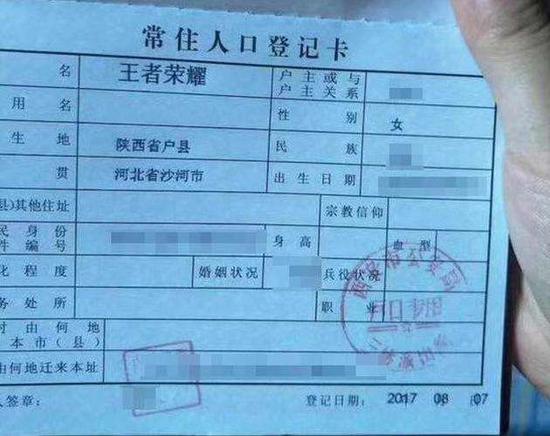 常住人口登记卡
名 王者荣耀 户主或与户主关系
用名 性别 女
生地 陕西省户县 民族
贯 河北省沙河市 出生日期
县)其他住址 宗教信仰
民身份件编号 身高 血型
化程度 婚姻状况 兵役状况
务处所 职业
时由何地本市(县)
由何地迁来本址
人签章： 登记日期： 2017 08 07
西安市公安局
户口专用